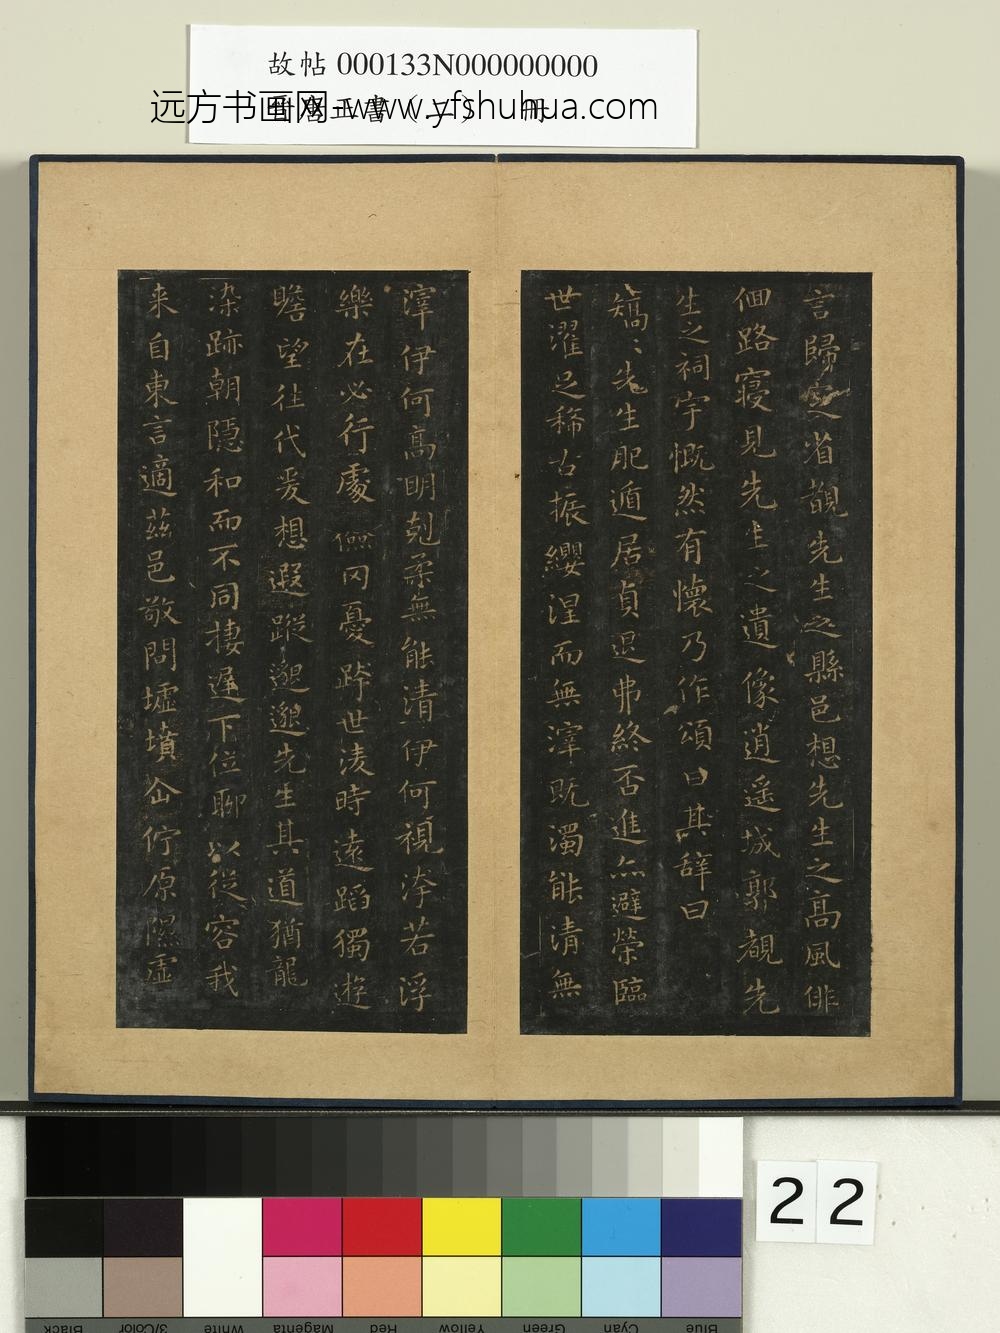 故帖 000133N000000000
远方书画网-www.yfshuhua.com
言歸定省覩先生之縣邑想先生之高風俳
佪路寢見先生之遺像逍遥城郭覩先
生之祠宇慨然有懷乃作頌曰其辭曰
矯〻先生肥遁居貞退弗終否進亦避榮臨
世濯足稀古振纓涅而無滓既濁能清無
滓伊何高明剋柔無能清伊何視洿若浮
樂在必行處儉罔憂跨世淩時遠蹈獨遊
瞻望往代爰想遐蹤邈邈先生其道猶龍
染跡朝隱和而不同棲遲下位聊以從容我
来自東言適茲邑敬問墟墳企佇原隰虛
22
Blue Cyan Green Yellow Red Magenta White 3/Color Black